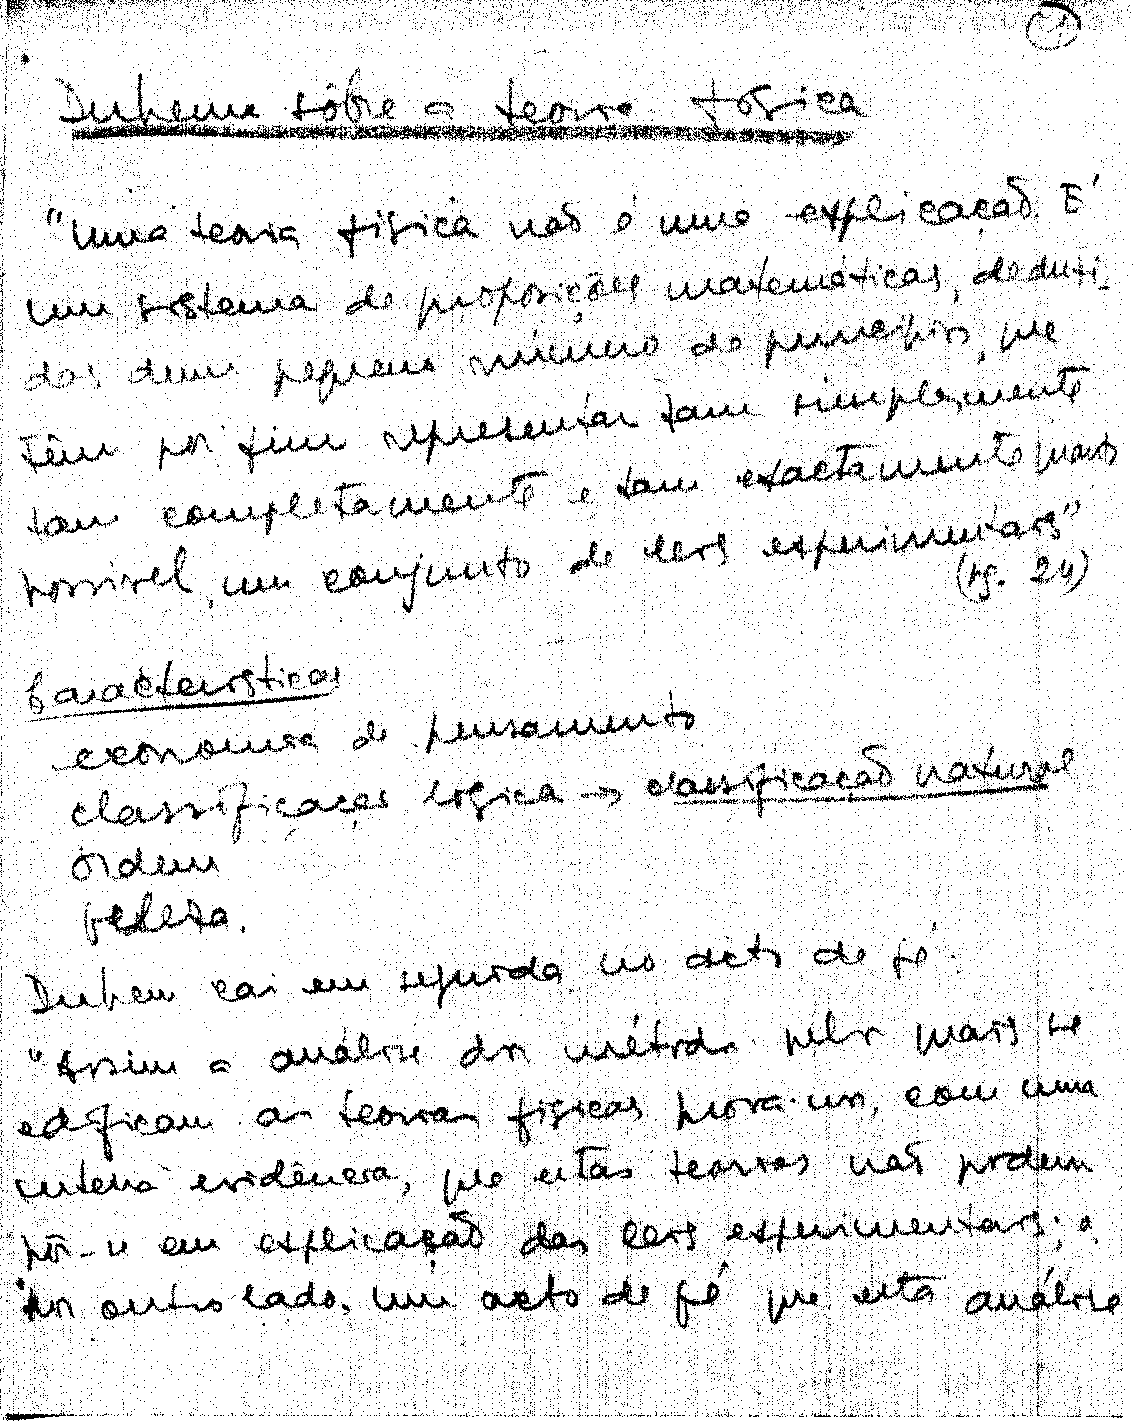 1
Duhem sôbre a teoria física
"Uma teoria física não é uma explicação. É
um sistema de proposições matemáticas, deduzi-
das dum pequeno número de princípios, que
têm por fim representar tam simplesmente
tam completamente e tam exactamente quanto
possivel, um conjunto de leis experimentais"
(pg. 24)
Características
economia de pensamento
classificação lógica → classificação natural
ordem
beleza.
Duhem cai em seguida no acto de fé.
"Assim a análise dos métodos pelos quais se
edificam as teorias físicas prova-nos, com uma
inteira evidência, que estas teorias não podem
pôr-se em explicação das leis experimentais; e,
por outro lado, um acto de fé que esta análise